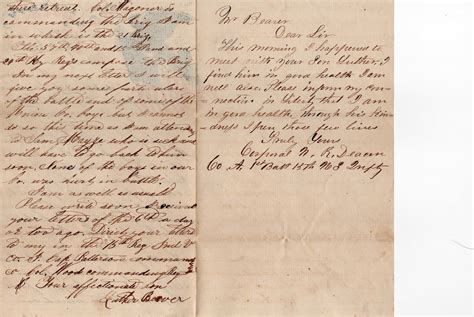 there retreat. Col. Wagoner is
commanding the brig I am
in which is the 21 brig.
The 57th and the 15th Ind and
Ky Reg compose the brig
In my next letter I will
give you some particulars
of the battle and of some of the
Union Co. boys but I cannot
do so this time as I am attending
to Sam who is sick and
will have to go back to him
soon. None of the boys in our
Co. was hurt in battle.
I am as well as usual
Please write soon. I received
your letters of the 6th a day
or two ago. Direct your letters
to my in the 15th Reg Ind V
Co. I. Cap. Patterson command
Col. Wood commanding Reg
Your affectionate son
Luther Beaver
Mr Beaver
Dear Sir
This morning I happened to
meet with your Son Luther. I
find him in good health I am
well also. Please inform my con
nection in Liberty that I am
in good health, through his kin
dness I pen these few lines
Truly Yours
Corporal W. R. Deacon
Co A. 1st Batt 15th U S Infty